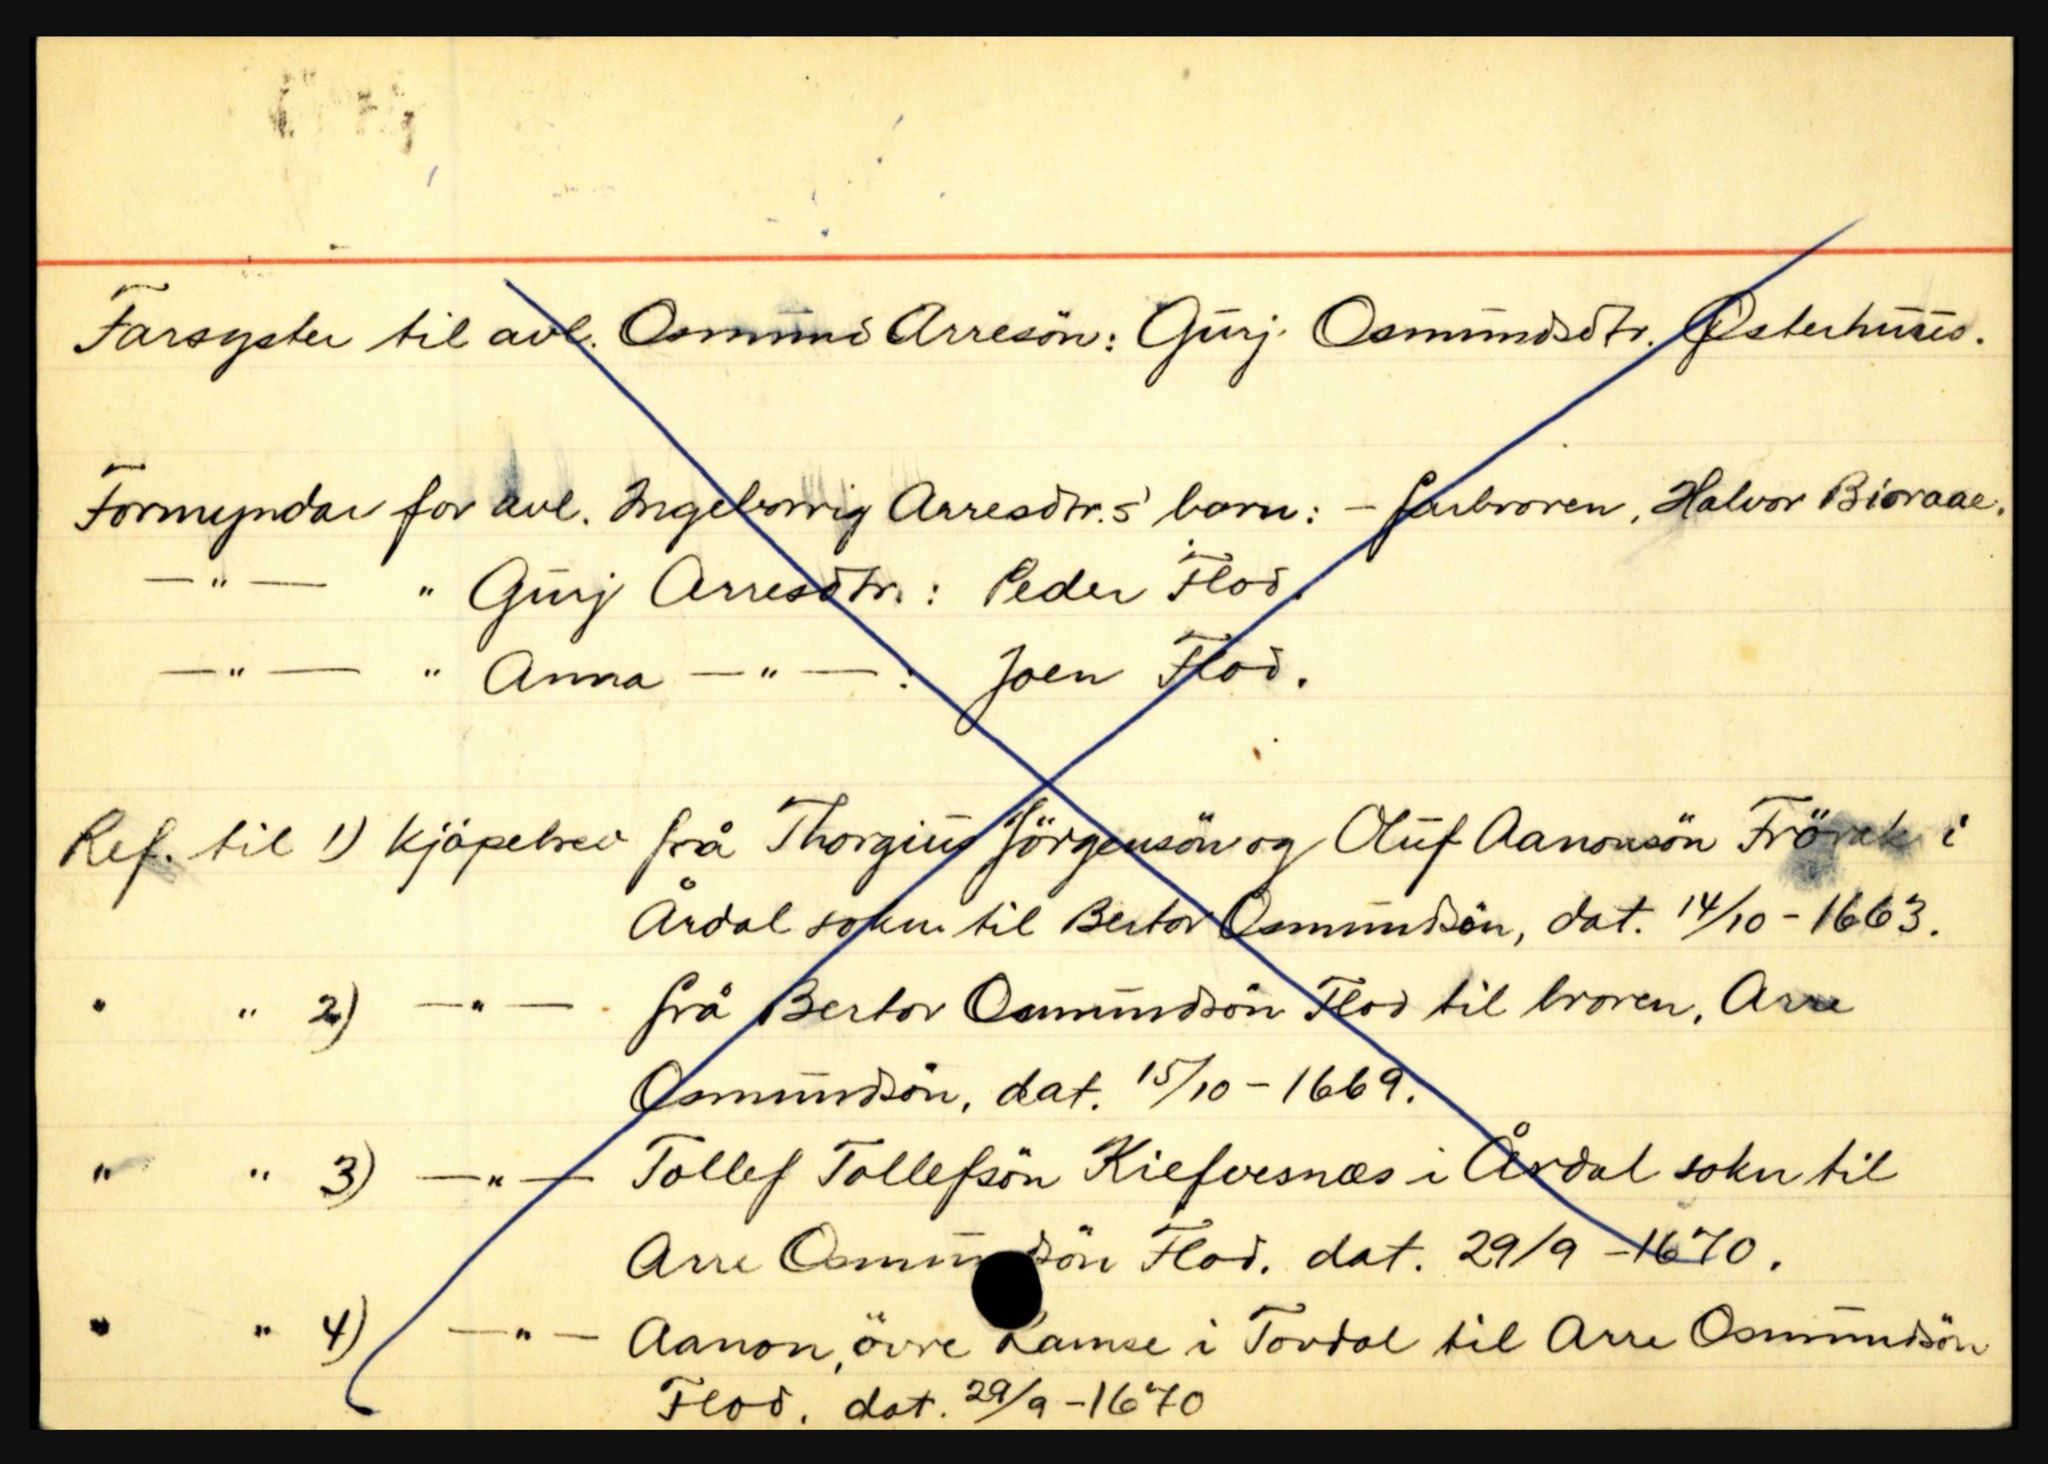 Farsyster til avl. Osmund Arresön: Gurj Osmundsdtr. Østerhuus.
Formyndar for avl. Ingeborrig Arresdtr.s' born: - farbroren, Halvor Bioraae.
—"— " Gurj Arresdtr.: Peder Flod.
—"— " Anna —"—: Joen Flod.
Ref. til 1) Kjöpebrev frå Thorgius Jörgensön og Oluf Aanonsön Frörak i
Årdal sokn til Bertor Osmundsön, dat. 14/10 - 1663.
" " 2) —"— frå Bertor Osmundsön Flod til broren, Arre
Osmundsön, dat. 15/10 - 1669.
" " 3) —"— Tollef Tollefsön Kiefvesnæs i Årdal sokn til
Arre Osmundsön Flod. dat. 29/9 - 1670.
" " 4) —"— Aanon, övre Ramse i Tovdal til Arre Osmundsön
Flod. dat. 29/9 - 1670